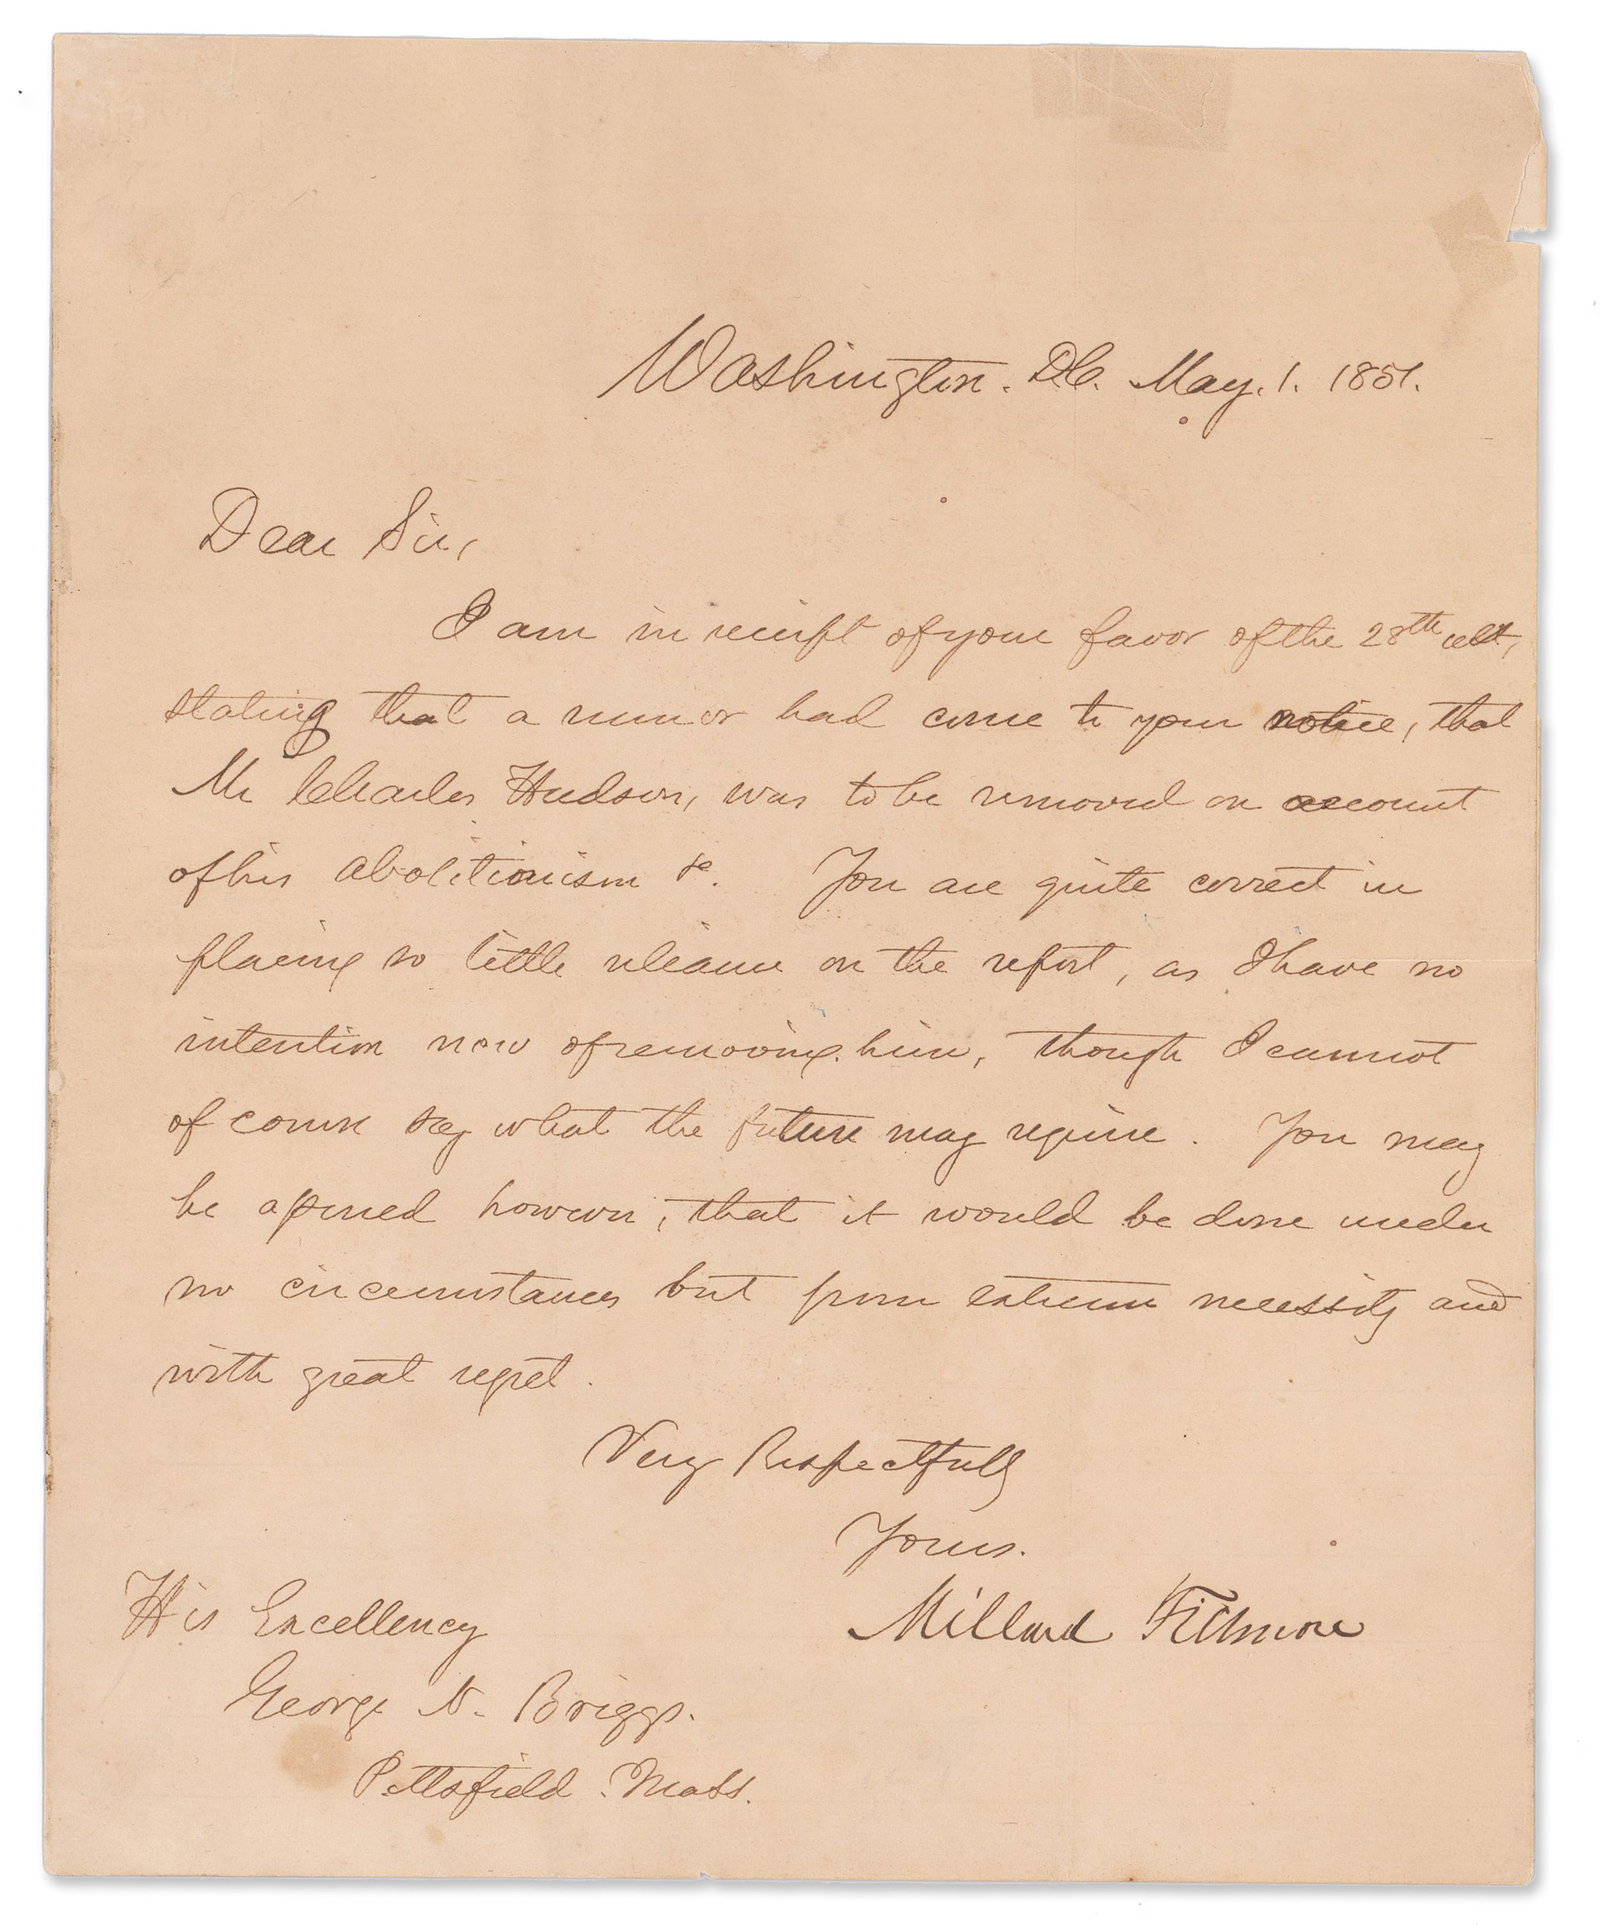 Washington. D.C. May. 1. 1851.
Dear Sir,
I am in receipt of your favor of the 28th ult,
stating that a rumor had come to your notice, that
Mr Charles Hudson, was to be removed on account
of his abolitionism &c. You are quite correct in
placing so little reliance on the report, as I have no
intention now of removing him, though I cannot
of course say what the future may require. You may
be assured however, that it would be done under
no circumstances but from extreme necessity and
with great regret.
Very Respectfully
Yours.
Millard Fillmore
His Excellency
George N. Briggs.
Pittsfield. Mass.